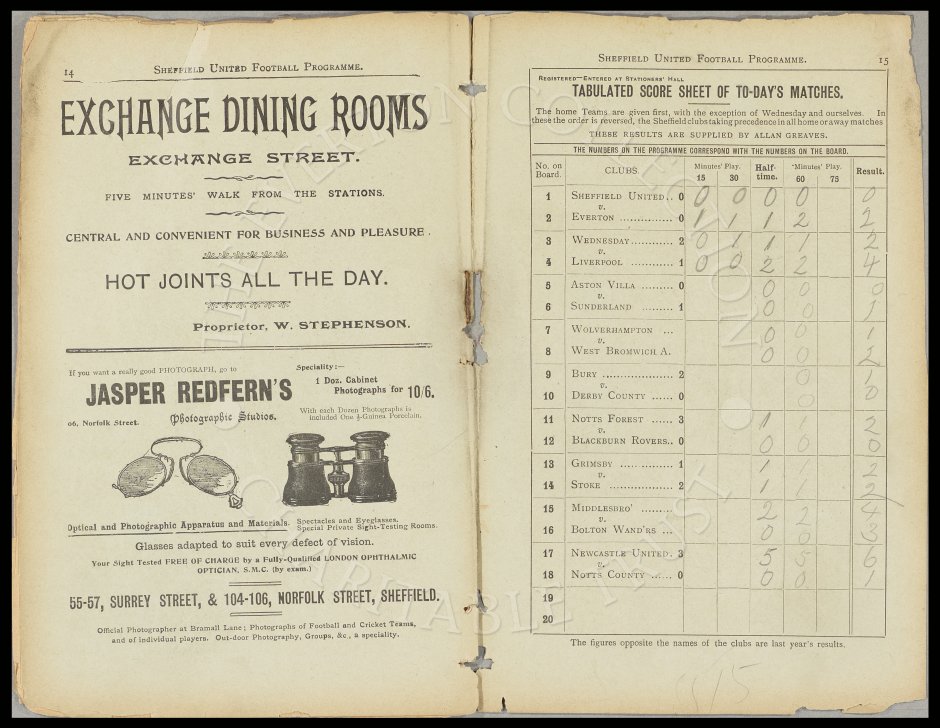 14 SHEFFIELD UNITED FOOTBALL PROGRAMME.
EXCHANGE DINING ROOMS
EXCHANGE STREET.
FIVE MINUTES' WALK FROM THE STATIONS.
CENTRAL AND CONVENIENT FOR BUSINESS AND PLEASURE.
HOT JOINTS ALL THE DAY.
Proprietor, W. STEPHENSON.
If you want a really good PHOTOGRAPH, go to
JASPER REDFERN'S
06, Norfolk Street. Photographic Studios.
Speciality:—
1 Doz. Cabinet
Photographs for 10/6.
With each Dozen Photographs is
included One ½-Guinea Porcelain.
Optical and Photographic Apparatus and Materials.
Spectacles and Eyeglasses.
Special Private Sight-Testing Rooms.
Glasses adapted to suit every defect of vision.
Your Sight Tested FREE OF CHARGE by a Fully-Qualified LONDON OPHTHALMIC
OPTICIAN, S.M.C. (by exam.)
55-57, SURREY STREET, & 104-106, NORFOLK STREET, SHEFFIELD.
Official Photographer at Bramall Lane; Photographs of Football and Cricket Teams,
and of individual players. Out-door Photography, Groups, &c., a speciality.
SHEFFIELD UNITED FOOTBALL PROGRAMME. 15
REGISTERED—ENTERED AT STATIONERS' HALL
TABULATED SCORE SHEET OF TO-DAY'S MATCHES.
The home Teams are given first, with the exception of Wednesday and ourselves. In
these the order is reversed, the Sheffield clubs taking precedence in all home or away matches
THESE RESULTS ARE SUPPLIED BY ALLAN GREAVES.
THE NUMBERS ON THE PROGRAMME CORRESPOND WITH THE NUMBERS ON THE BOARD.
No. on Board. CLUBS. Minutes' Play. 15 30 Half-time. Minutes' Play. 60 75 Result.
1 SHEFFIELD UNITED.. 0 0 0 0 0 0
v.
2 EVERTON ............... 0 1 1 1 2 2
3 WEDNESDAY............ 2 0 1 1 1 2
v.
4 LIVERPOOL ............ 1 0 0 2 2 4
5 ASTON VILLA ......... 0 0 0 0
v.
6 SUNDERLAND ......... 1 0 0 1
7 WOLVERHAMPTON ... 0 0 1
v.
8 WEST BROMWICH A. 0 0 2
9 BURY ..................... 2 0 1
v.
10 DERBY COUNTY ...... 0 0 0
11 NOTTS FOREST ...... 3 1 1 2
v.
12 BLACKBURN ROVERS.. 0 0 0 0
13 GRIMSBY ............... 1 1 1 2
v.
14 STOKE .................. 2 1 1 2
15 MIDDLESBRO' ......... 2 2 4
v.
16 BOLTON WAND'RS ... 0 0 3
17 NEWCASTLE UNITED. 3 5 5 6
v.
18 NOTTS COUNTY ...... 0 0 0 1
19
20
The figures opposite the names of the clubs are last year's results.